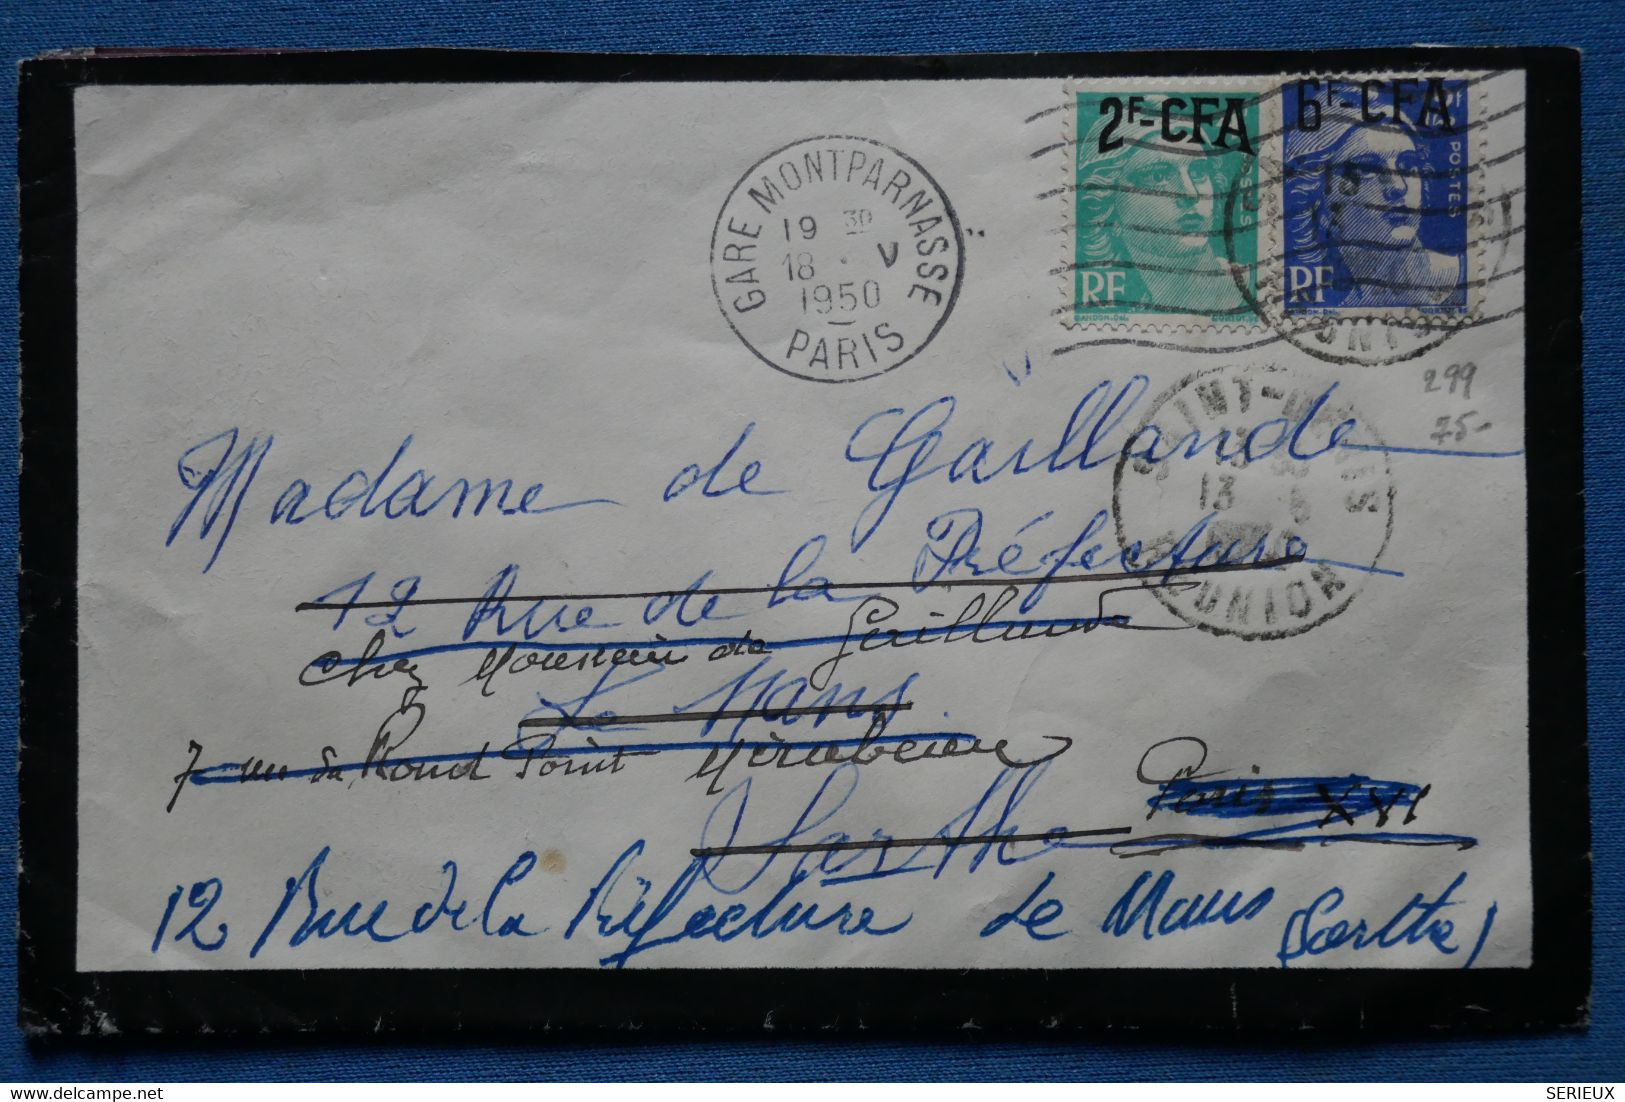 2F-CFA
6F-CFA
POSTES
RF
RF
GANDON-Del.
GARE MONTPARNASSE
19 30
18 · V
1950
PARIS
SAINT-DENIS
13
13 5
RÉUNION
299
75-
Madame de Gaillande
12 Rue de la Préfecture
Chez Monsieur de Gaillande
Le Mans
7 rue du Rond Point Mirabeau
Paris XVI
Sarthe
12 Rue de la Préfecture Le Mans (Sarthe)
Delcampe.net
SERIEUX